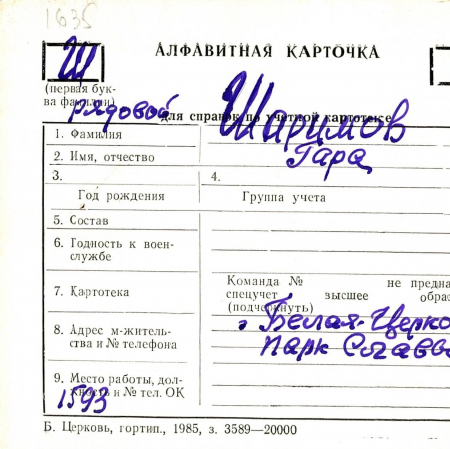 1635
Ш
АЛФАВИТНАЯ КАРТОЧКА
(первая бук-
ва фамилии)
рядовой
для справок по учетной картотеке
Шаримов
1. Фамилия
Гара
2. Имя, отчество
3.
4.
Год рождения
Группа учета
5. Состав
6. Годность к воен-
службе
7. Картотека
Команда № не предна
спецучет высшее обра
(подчеркнуть)
г Белая-Церко
8. Адрес м-житель-
ства и № телефона
парк
9. Место работы, дол-
жность и № тел. ОК
1593
Б. Церковь, гортип., 1985, з. 3589—20000